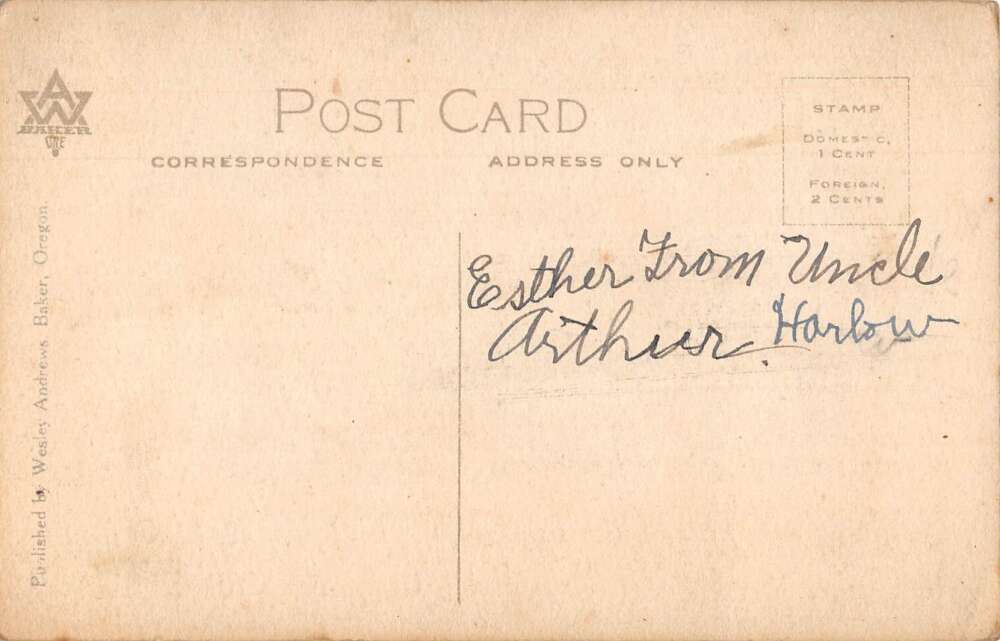 AW
BAKER
ORE
POST CARD
CORRESPONDENCE
ADDRESS ONLY
STAMP
DOMESTIC,
1 CENT
FOREIGN,
2 CENTS
Esther From Uncle
Arthur. Harlow
Published by Wesley Andrews Baker, Oregon.